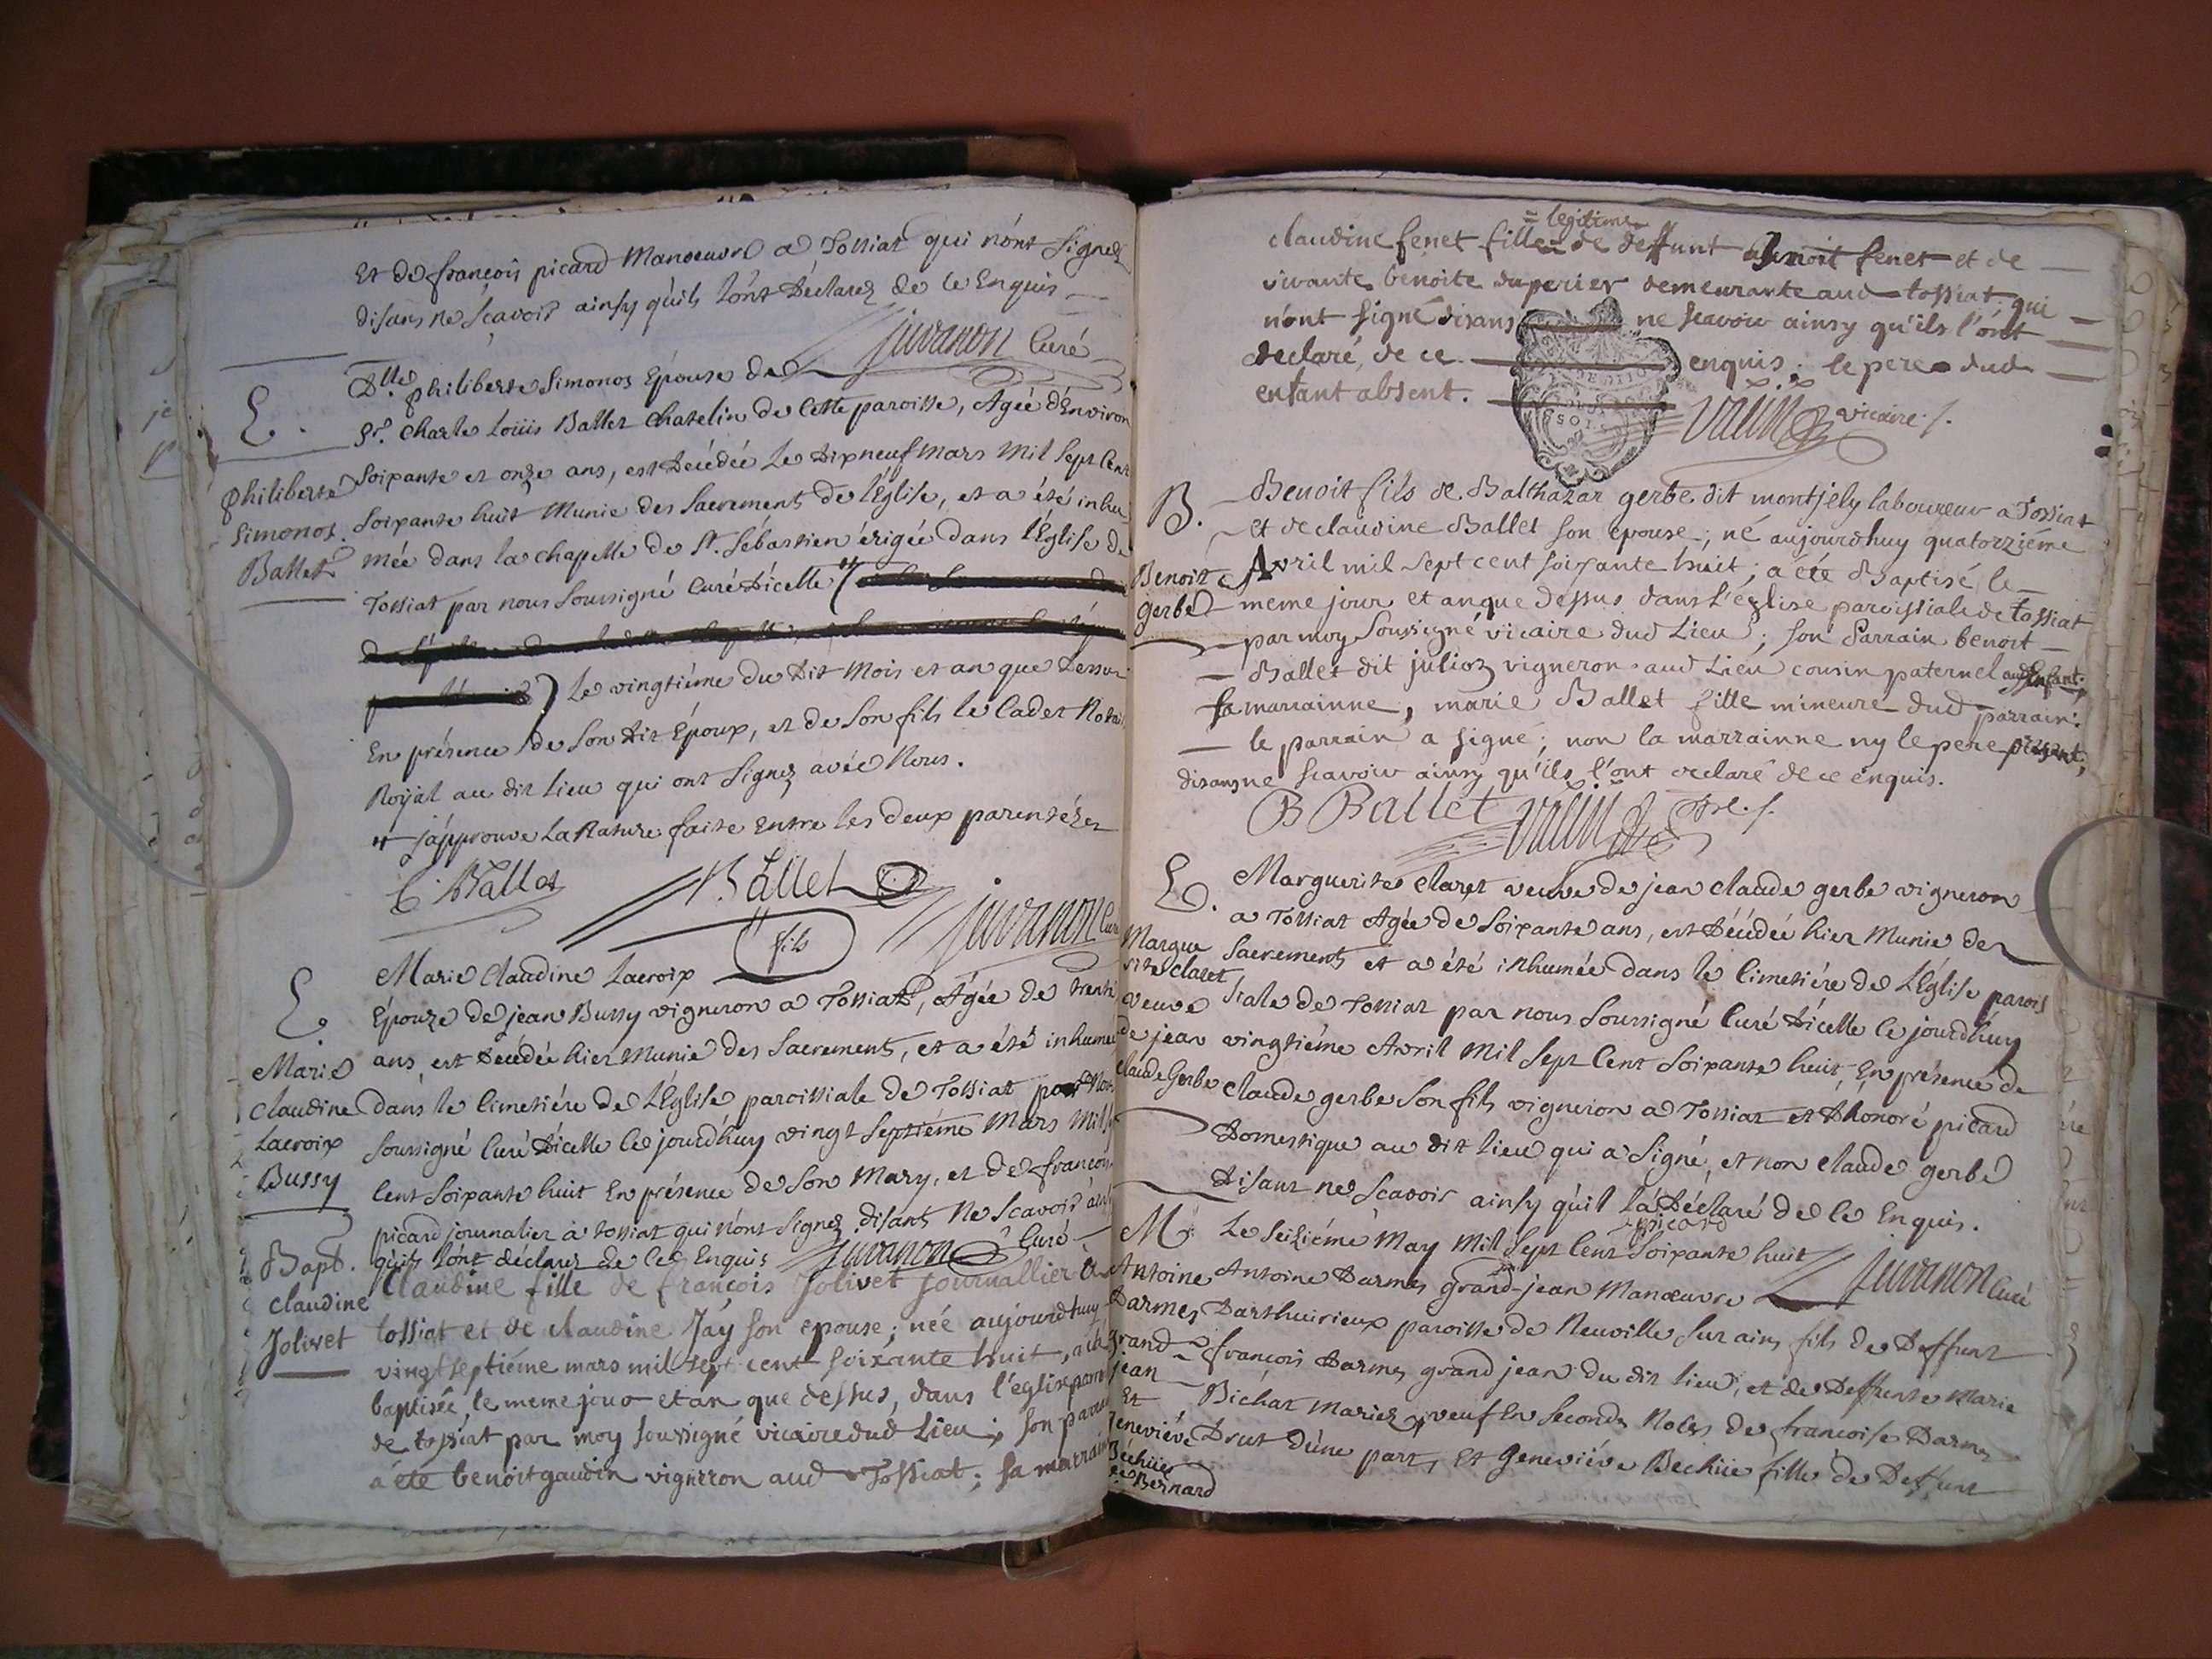 Et de françois picard Manoeuvre a Tossiat qui n'ont Signez
disans ne sçavoir ainsy qu'ils l'ont Déclarez de ce Enquis
Juvanon Curé
E.
philiberte
Simonoz
Ballet
Dlle philiberte Simonoz Epouse de
Sr. Charle Loüis Ballet Chatelin de Cette paroisse, Agée d'Environ
Soixante et onze ans, est Décédée Le Dixneuf Mars Mil Sept Cent
Soixante huit Munie des Sacrements de l'Eglise, et a été inhu-
mée dans la chapelle de St. Sébastien érigée dans l'Eglise de
Tossiat par nous Soussigné Curé D'icelle
Le vingtiéme du Dit Mois et an que Dessus
En présence de Son Dit Epoux, et de Son fils le Cadet Notaire
Royal au dit Lieu qui ont Signez avec Nous.
j'approuve La Rature faite Entre les deux parentézes
C. Ballet
Ballet
fils
Juvanon Curé
E.
Marie
Claudine
Lacroix
Bussy
Marie Claudine Lacroix
Epouze de jean Bussy vigneron a Tossiat, Agée de trente
ans, est Decedée hier Munie des Sacrements, et a été inhumée
dans le Cimetiére de L'Eglise paroissiale de Tossiat par Nous
Soussigné Curé D'icelle Ce jourd'huy vingt Septiéme Mars Mil Sept
Cent Soixante huit En présence de Son Mary, et de françois
picard journalier à tossiat qui n'ont Signez disants Ne Scavoir ainsy
qu'ils L'ont déclarez de Ce Enquis Juvanon Curé
Bapt.
claudine
Jolivet
Claudine fille de françois Jolivet journallier a
tossiat et de claudine Jay son epouse; née aujourdhuy
vingtseptiéme mars mil sept cent soixante huit, a été
baptisée le meme jour et an que dessus, dans l'eglise paroissiale
de tossiat par moy soussigné vicaire dud Lieu; son parrain
a été benoit gaudin vigneron aud Tossiat; sa marraine
claudine fenet fille = legitime de deffunt Benoit fenet et de
vivante benoite duperier demeurante aud tossiat qui
n'ont signé disans ne scavoir ainsy qu'ils l'ont
declaré, de ce enquis; le pere dud
enfant absent.
vicaire
B.
Benoit
Gerbe
Benoit fils de Balthazar gerbe dit montjely laboureur a Tossiat
et de claudine Ballet son epouse; né aujourdhuy quatorziéme
Avril mil sept cent soixante huit; a été Baptisé le
meme jour et an que dessus dans l'église paroissiale de tossiat
par moy Soussigné vicaire dud Lieu; son Parrain benoit
Ballet dit julioz vigneron aud Lieu cousin paternel aud Enfant;
sa marrainne, marie Ballet fille mineure dud parrain:
le parrain a signé; non la marrainne ny le pere présent;
disans ne scavoir ainsy qu'ils l'ont declaré de ce enquis.
B Ballet
E.
Margue
rite claret
veuve
de jean
Claude Gerbe
Marguerite Claret veuve de jean Claude gerbe vigneron
a Tossiat Agée de Soixante ans, est Décédée hier Munie des
Sacrements et a été inhumée dans le Cimetiére de L'Eglise parois
siale de Tossiat par nous Soussigné Curé D'icelle Ce jourd'huy
vingtiéme Avril Mil Sept Cent Soixante huit, En présence de
Claude gerbe Son fils vigneron a Tossiat et D'honoré picard
Domestique au dit Lieu qui a Signé, et non Claude gerbe
Disant ne Scavoir ainsy qu'il La Déclaré de Ce Enquis.
picard
Juvanon Curé
M.
Antoine
Darmes
grand
jean
Et
Geneviéve
Béchüe
Bernard
Le Seiziéme May Mil Sept Cent Soixante huit
Antoine Darmes grand-jean Manoeuvre
Darthuirieux paroisse de Neuville Sur ains fils de Deffunt
françois Darmes grand jean du dit lieu, et de Deffunte Marie
Bichat Mariez, veuf En Seconde Noces de francoise Darmes
Drut D'une part, Et Geneviéve Bechüe fille de Deffunt